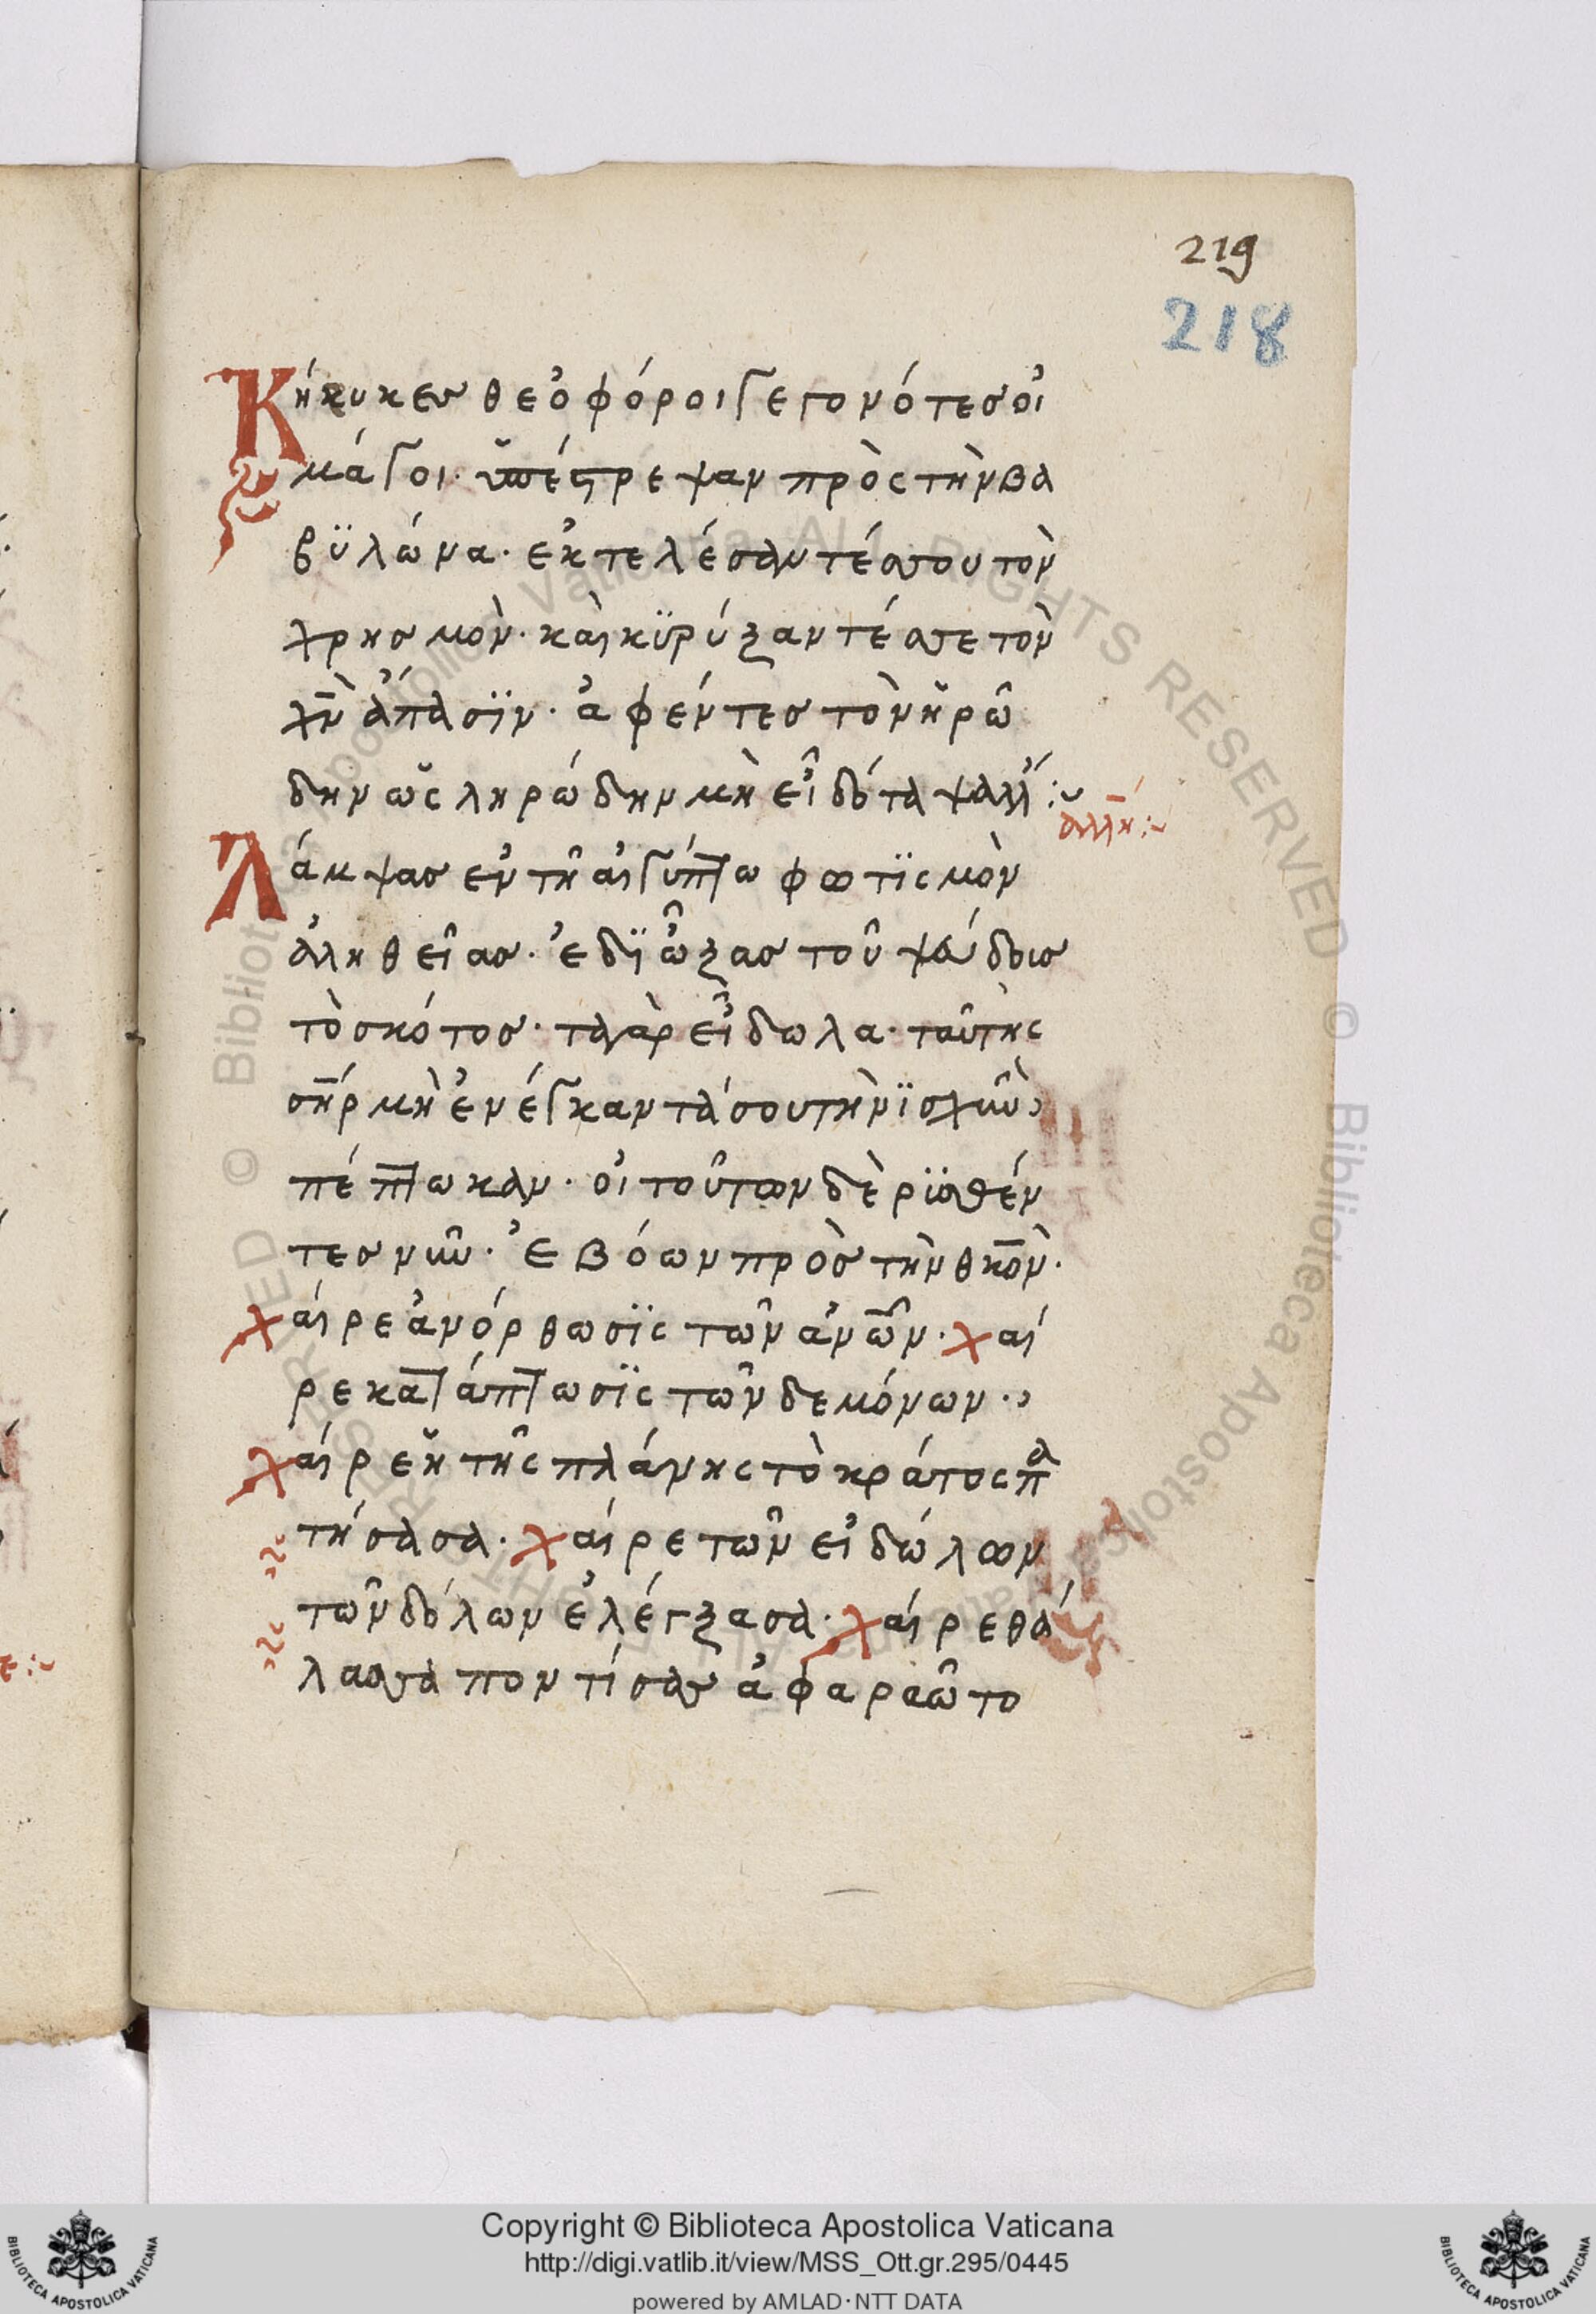 219
218
Κήρυκες θεὀφόροι γεγονότες οἱ
μάγοι· ὑπέστρεψαν πρὸς τὴν βα
βϋλώνα· εκτελέσαντές σου τὸν
χρησμὸν· καὶ κϋρύξαντές σε τὸν
χν̅ ἅπασϊν· ἀφέντες τὸν ἡρώ
δην ὡς ληρώδην μὴ εἶδότα ψάλλ :~
αλλη̅ :~
Λάμψας εν τῆ αἰγύπτω φωτϊσμὸν
ἀληθεῖας· ἐδϊῶξας τοῦ ψεύδους
τὸ σκότος· τὰ γὰρ εἶδωλα· ταῦτης
ση̅ρ μὴ ἐνέγκαντά σου τὴν ϊσχὺν
πέπτωκαν· οἱ τοῦτων δὲ ρϊσθέν
τες νῦν· ἐβόων πρὸς τὴν θκο̅ν·
χαίρε ἀνόρθωσϊς τῶν ἀνω̅ν· χαί
ρε κατάπτωσϊς τῶν δεμόνων·
χαίρε ἡ τῆς πλάνης τὸ κράτος πα
τήσασα· χαίρε τῶν εἰδώλων
τῶν δόλων ἐλέγξασα· χαίρε θά
λασσα ποντίσασα φαραῶ το
Copyright © Biblioteca Apostolica Vaticana
http://digi.vatlib.it/view/MSS_Ott.gr.295/0445
powered by AMLAD·NTT DATA